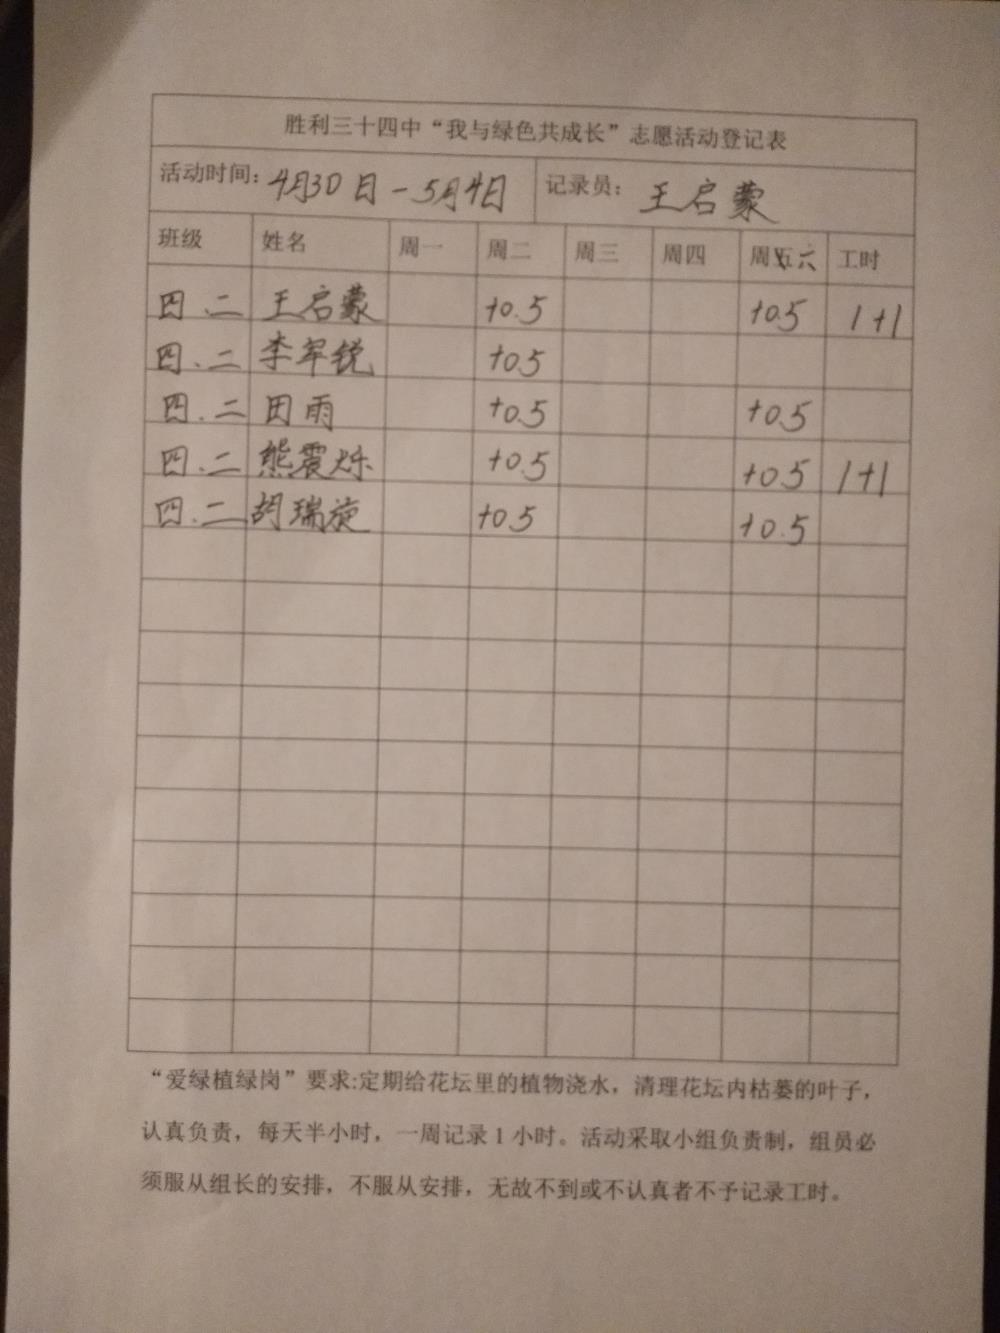 胜利三十四中“我与绿色共成长”志愿活动登记表
活动时间：4月30日-5月4日 记录员：王启蒙
班级 姓名 周一 周二 周三 周四 周六 工时
四.二 王启蒙 +0.5 +0.5 1+1
四.二 李军锐 +0.5
四.二 田雨 +0.5 +0.5
四.二 熊震烁 +0.5 +0.5 1+1
四.二 胡瑞旋 +0.5 +0.5
“爱绿植绿岗”要求:定期给花坛里的植物浇水，清理花坛内枯萎的叶子，
认真负责，每天半小时，一周记录1小时。活动采取小组负责制，组员必
须服从组长的安排，不服从安排，无故不到或不认真者不予记录工时。